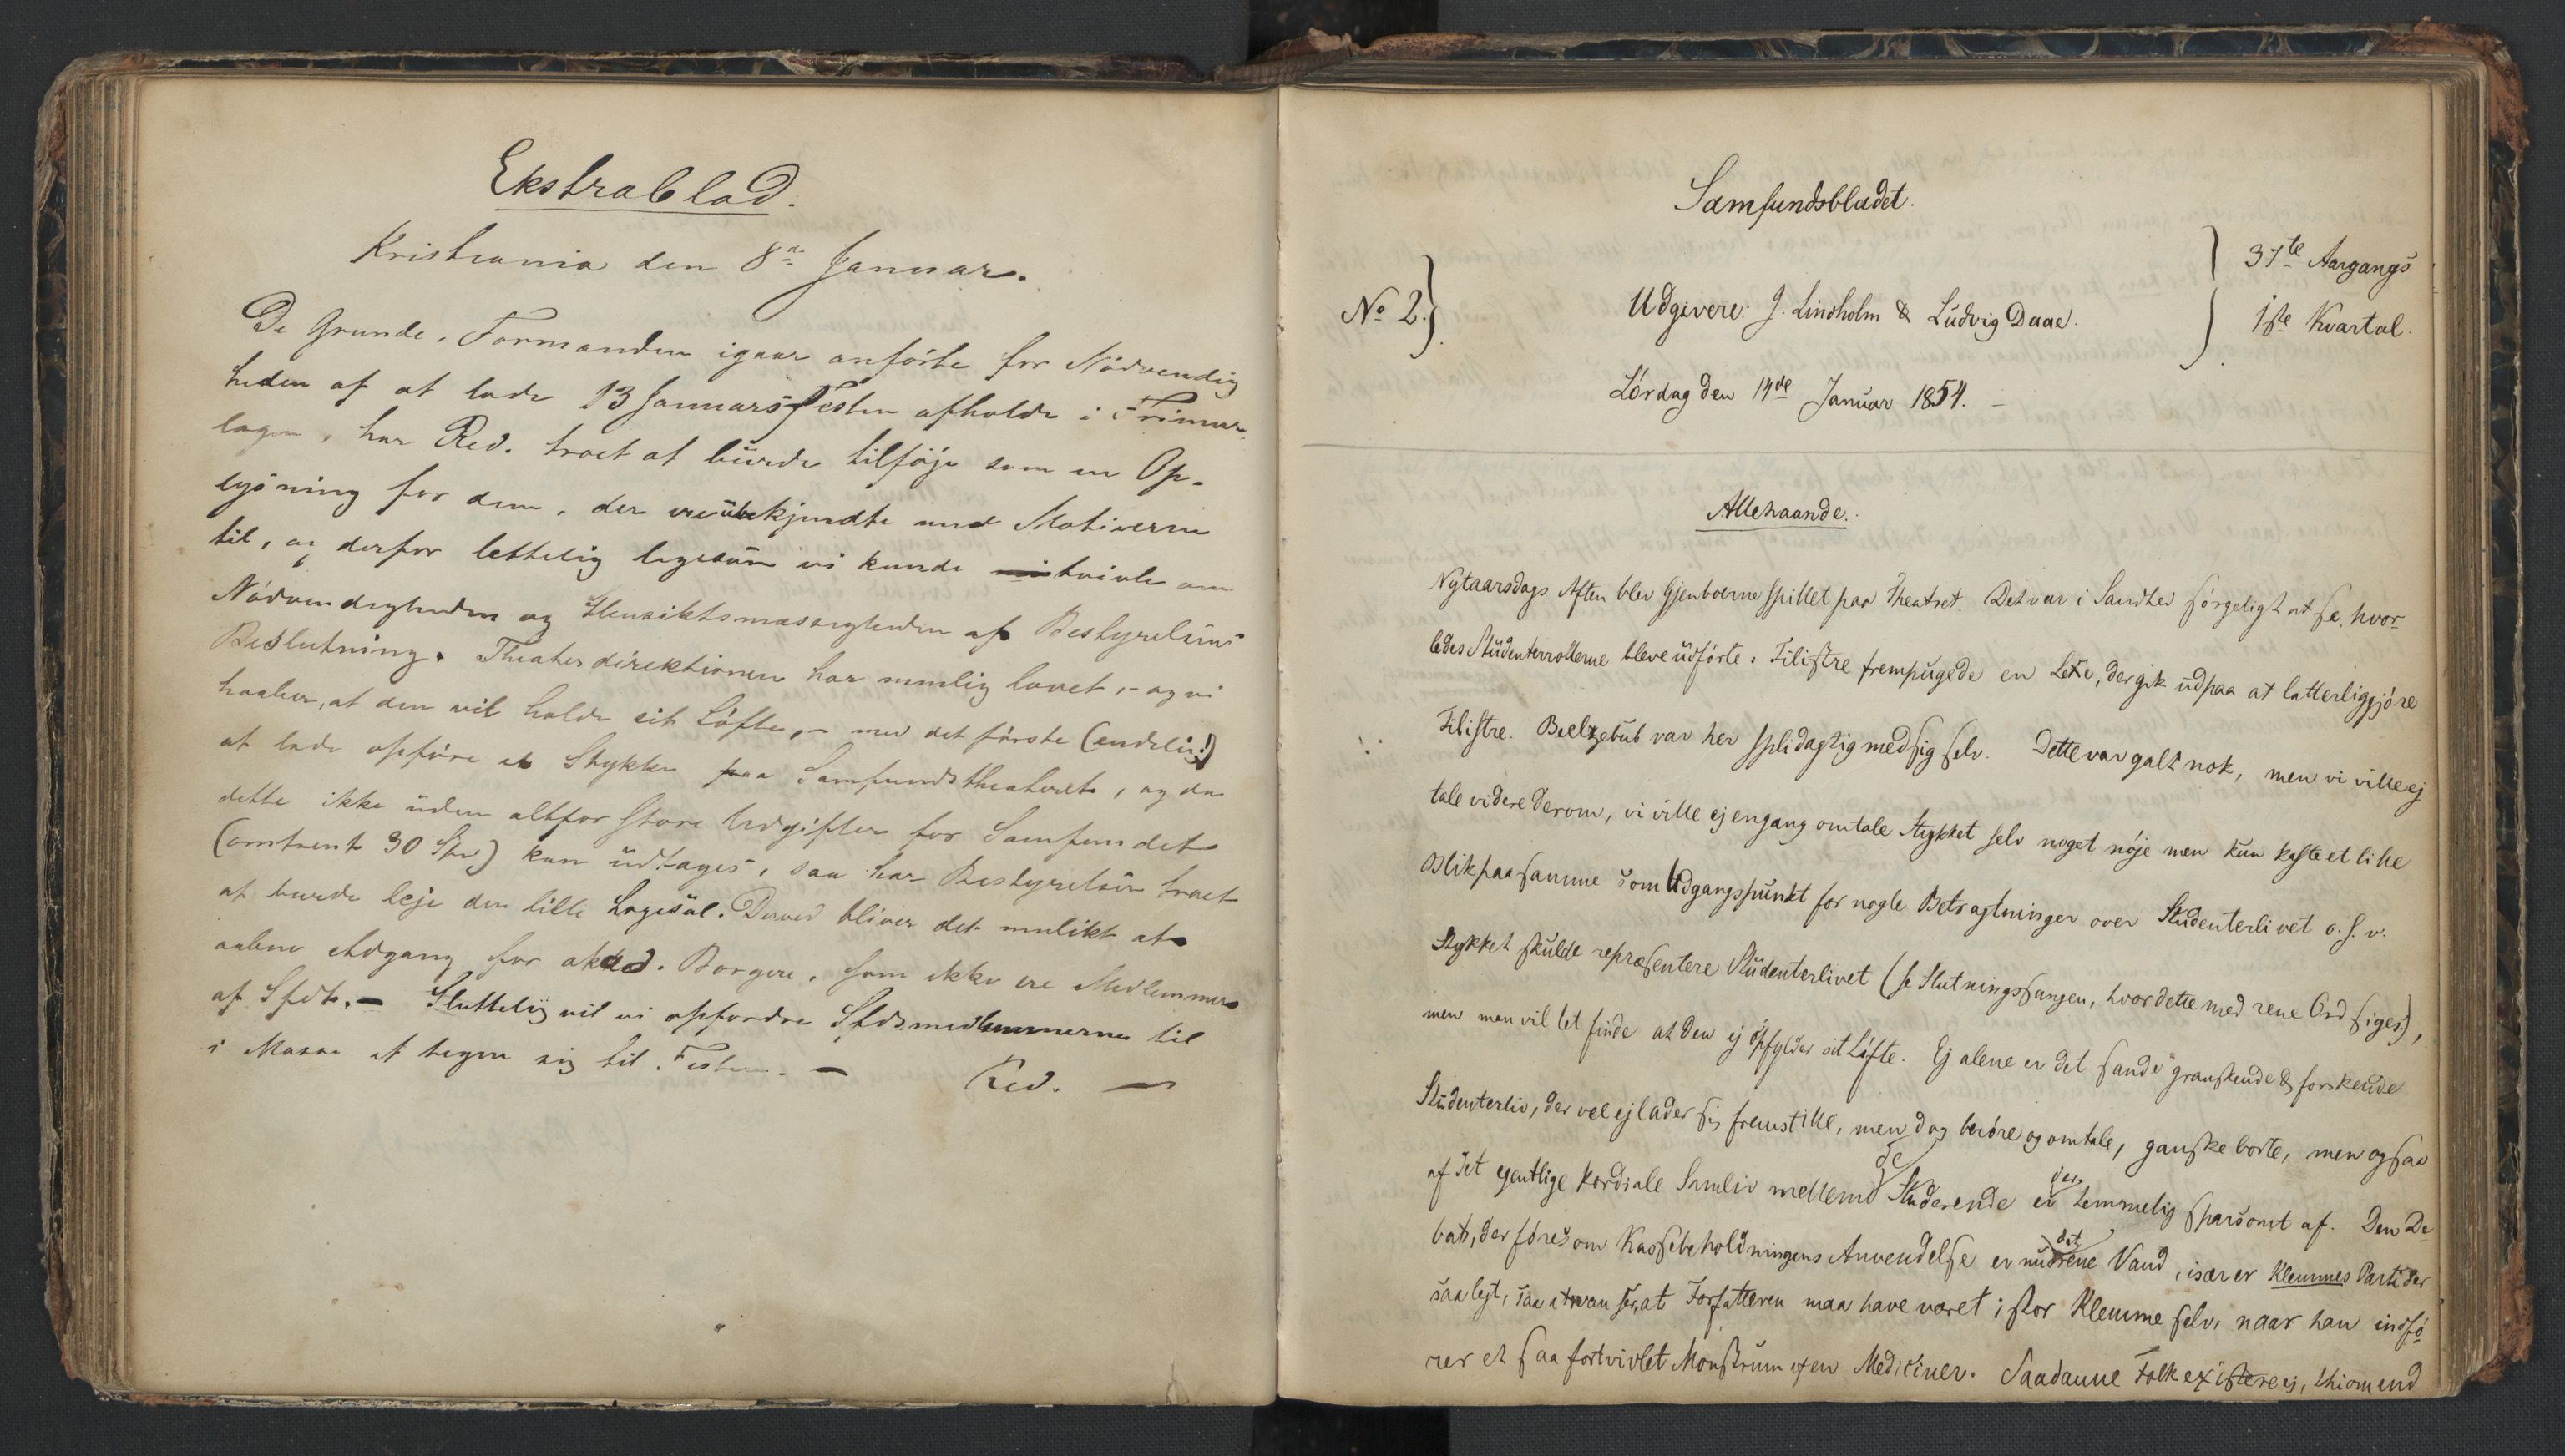 Ekstrablad.
Kristiania den 8de Januar.
De Grunde, Formanden igaar anførte for Nødvendig
heden af at lade 13 JanuarsFesten afholde i Frimur
logen, har Red. troet at burde tilføje som en Op-
lysning for dem, der ere ubekjendte med Motiverne
til, og derfor lettelig ligesom vi kunde tvivle om
Nødvendigheden og Hensiktsmæssigheden af Bestyrelsens
Beslutning. Theaterdirektionen har nemlig lovet, - og vi
haaber, at den vil holde sit Løfte, - med det første (endelig!)
at lade opføre et Stykke paa Samfundstheateret, og da
dette ikke uden altfor store Udgifter for Samfundet
(omtrent 30 Spd) kan udtages, saa har Bestyrelsen troet
at burde leje den lille Logesal. Derved bliver det mulikt at
aabne Adgang for akad. Borgere, som ikke ere Medlemmer
af Sfdt. - Sluttelig vil vi opfordre Sfdsmedlemmerne til
i Masse at tegne sig til Festen. -
Red. -
Samfundsbladet.
No 2.}
Udgivere: J. Lindholm & Ludvig Daae.
} 31te Aargangs
} 1ste Kvartal.
Lørdag den 14de Januar 1854. -
Allehaande.
Nytaarsdags Aften blev Gjenboerne spillet paa Theatret. Det var i Sandhed sørgeligt at se, hvor-
ledes Studenterrollerne bleve udførte: Filistre frempugede en Lexe, der gik ud paa at latterliggjøre
Filistre. Beelzebub var her splidagtig med sig selv. Dette var galt nok, men vi ville ej
tale videre derom, vi ville ej engang omtale Stykket selv noget nøje men kun kaste et lite
Blik paa samme som Udgangspunkt for nogle Betragtninger over Studenterlivet o. s. v.
Stykket skulde repræsentere Studenterlivet (se Slutningssangen, hvor dette med rene Ord siges),
men man vil let finde at den ej opfylder sit Løfte. Ej alene er det sande granskende & forskende
Studenterliv, der vel ej lader sig fremstille, men dog berøre og omtale, ganske borte, men ogsaa
af det egentlige kordiale Samliv mellem de Studerende er der temmelig sparsomt af. Den De-
bat, der føres om Kassebeholdningens Anvendelse er nu det rene Vand, isærer Klemmes Parti der
saa lejt, saa at man ser, at Forfatteren maa have været i stor Klemme selv, naar han indfø-
rer et saa fortvivlet Monstrum af en Mediciner. Saadanne Folk existere ej, thi om end